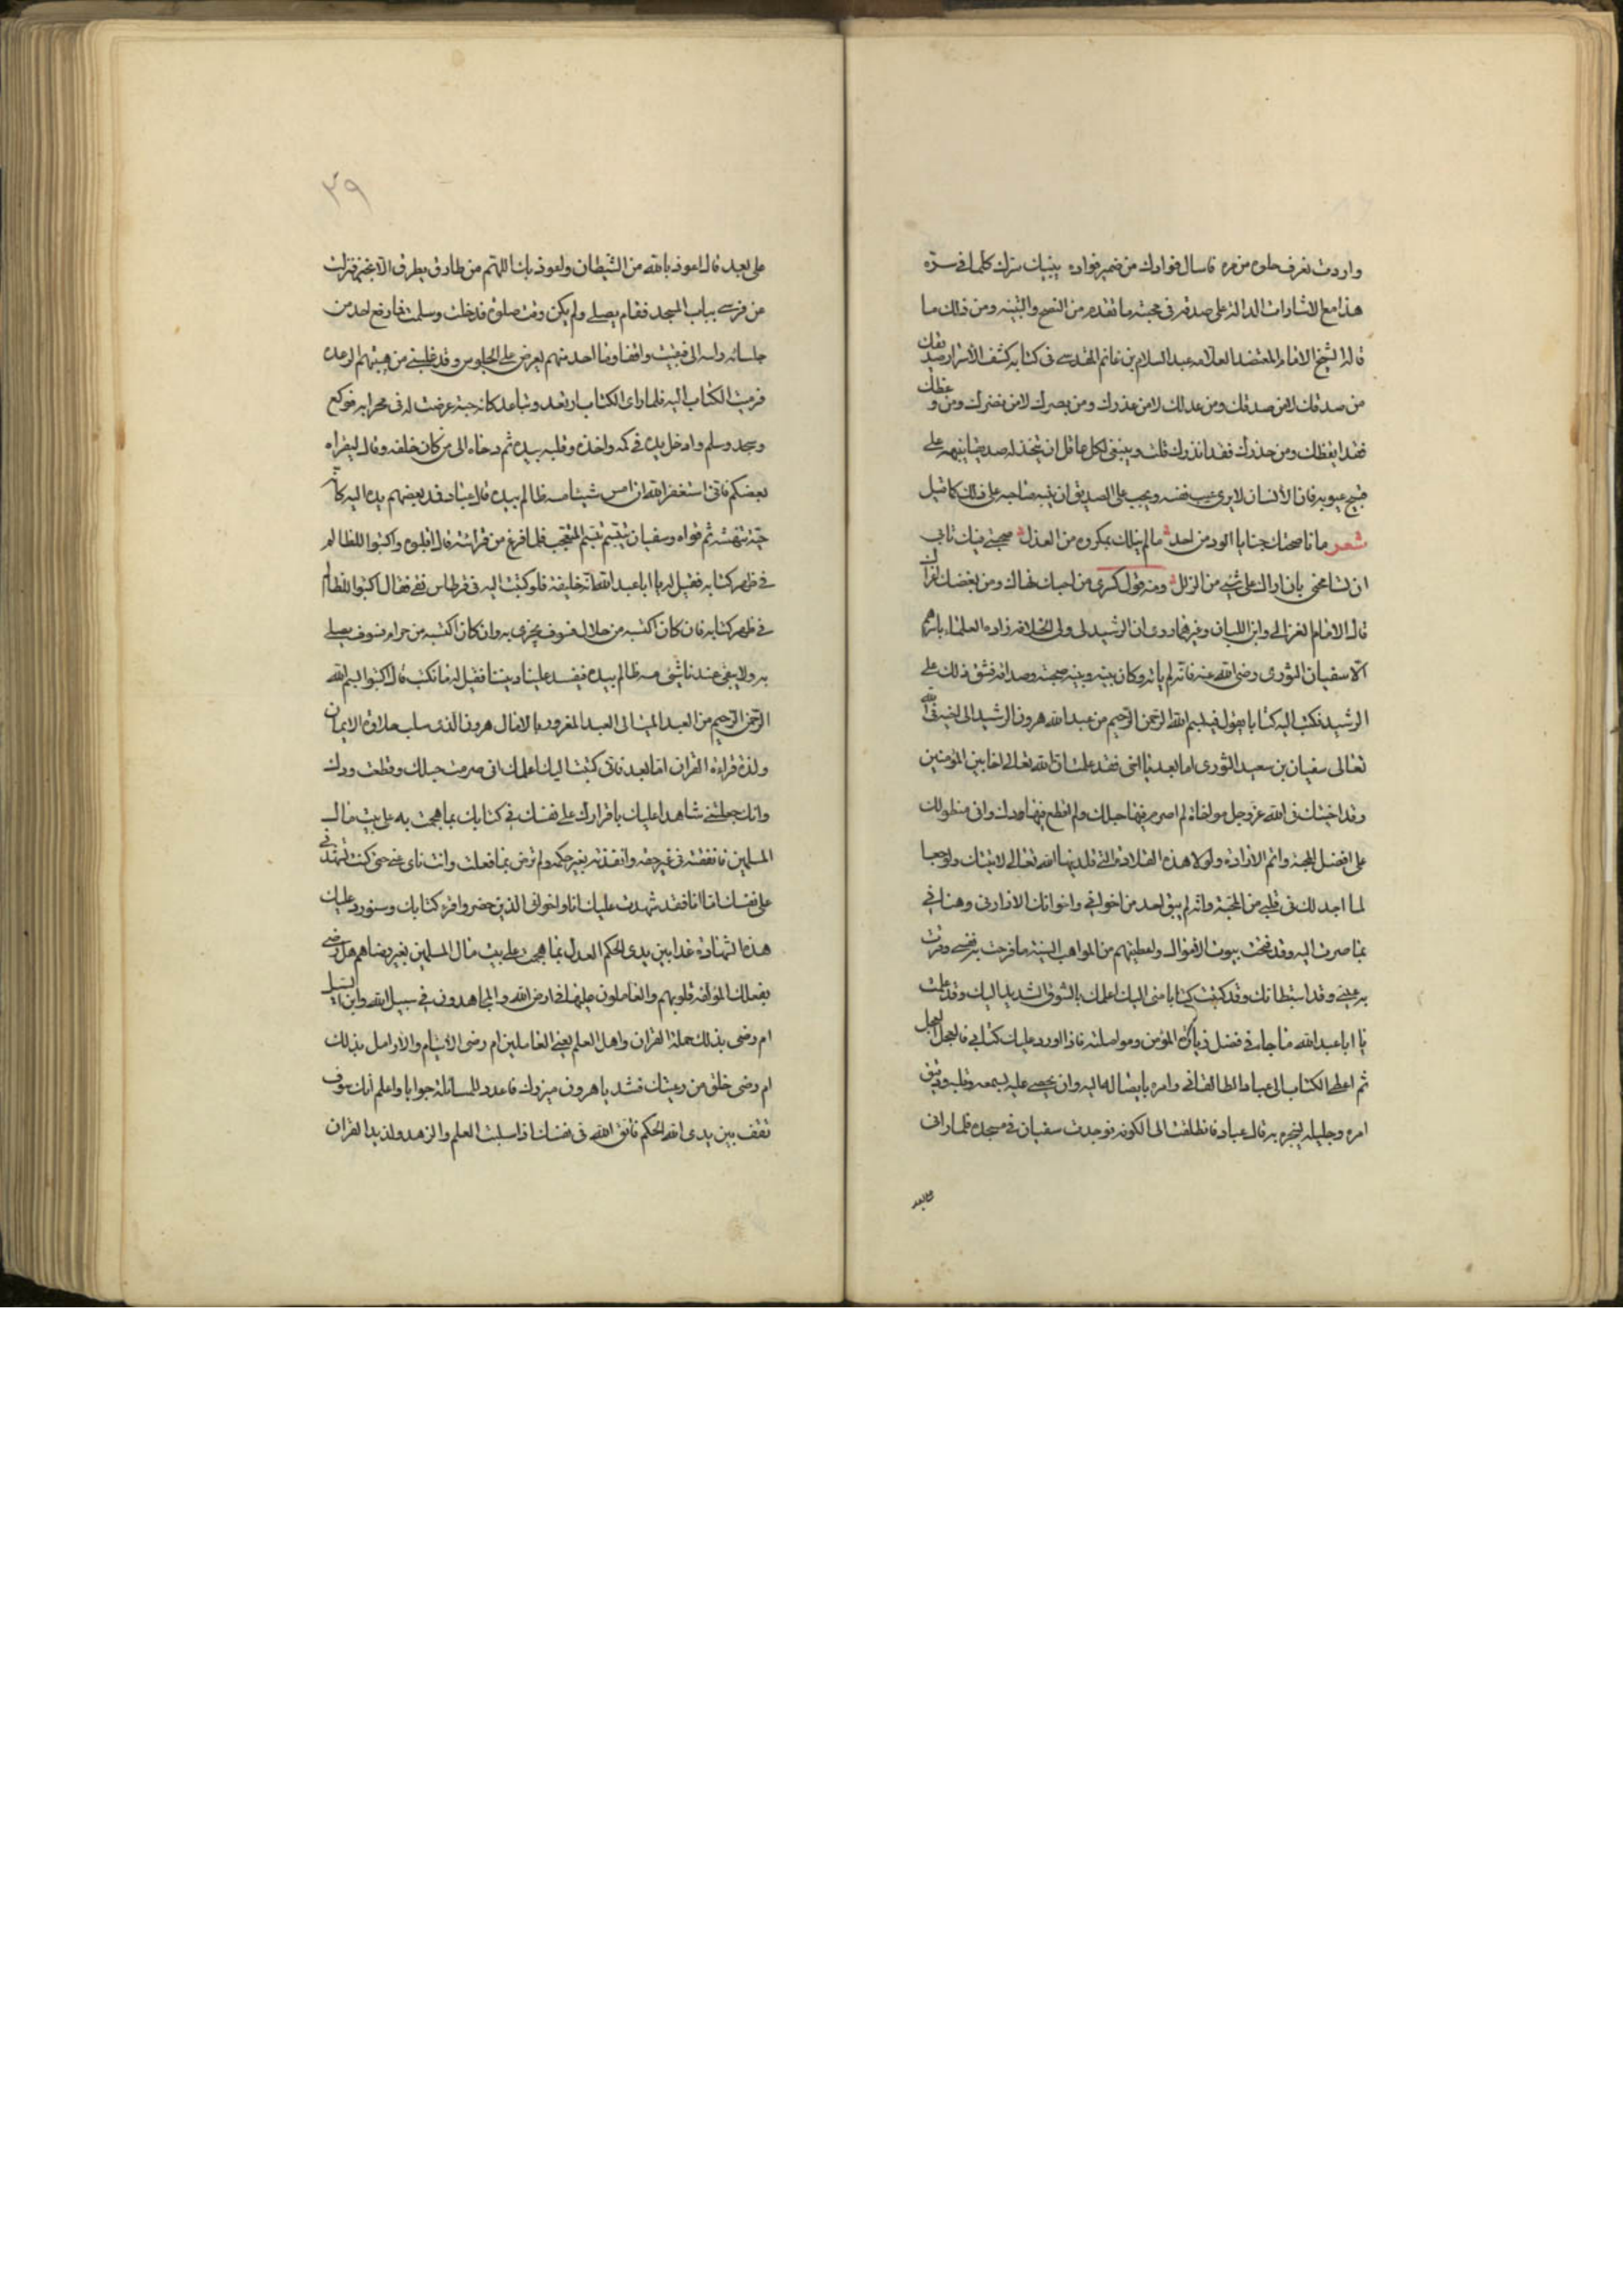 واردت تعرف حلوه من مره فاسال فوادك من ضمير فواده ينبيك سرك كلما في سره
هذا مع الاشارات الدالة على صدقه في محبته ما تقدم من النصح والتنبيه ومن ذلك ما
قاله الشيخ الامام المعتضد العلامه عبد السلام بن غانم المقدسي في كتابه كشف الاسرار صديقك
من صدقك لا من صدقك ومن عدلك لا من عذرك ومن بصرك لا من نصرك ومن وعظك
فقد ايقظك ومن حذرك فقد انذرك قلت وينبغي لكل عاقل ان يتخذ له صديقا ينبهه على
قبيح عيوبه فان الانسان لا يرى عيب نفسه ويجب على الصديق ان ينبه صاحبه على ذلك كما قيل
شعر ما ناصحتك خبايا الود من احد ما لم ينلك بمكروه من العذل محبتي فيك تابى
ان تسامحني بان اراك على شيء من الزلل ومنه قول كسرى من احبك نهاك ومن بغضك اغراك
قال الامام الغزالي وابن اللبان وغيرهما روى ان الرشيد لما ولى الخلافه زاره العلماء باسرهم
الا سفيان الثورى رضى الله عنه فانه لم ياته وكان بينه وبينه صحبة وصداقه فشق ذلك على
الرشيد فكتب اليه كتابا يقول فيه بسم الله الرحمن الرحيم من عبد الله هرون الرشيد الى اخيه في الله
تعالى سفيان بن سعيد الثورى اما بعد يا اخى فقد علمت ان الله تعالى اخا بين المؤمنين
وقد اخيتك في الله عز وجل مواخاة لم اصرم فيها حبلك ولم اقطع فيها ودك وانى منطو لك
على افضل المحبة واتم الارادة ولولا هذه القلادة التي قلدنيها الله تعالى لاتيتك ولو حبوا
لما اجد لك في قلبي من المحبة وانه لم يبق احد من اخواني واخوانك الا زارنى وهناني
بما صرت اليه وقد فتحت بيوت الاموال واعطيتهم من المواهب السنية ما فرحت به نفسي وقرت
به عيني وقد استبطاتك وقد كتبت كتابا منى اليك اعلمك بالشوق الشديد اليك وقد علمت
يا ابا عبد الله ما جاء في فضل زيارة المؤمن ومواصلته فاذا ورد عليك كتابي فالعجل العجل
ثم اعطى الكتاب الى عباد الطالقاني وامره بايصاله اليه وان يحصي عليه بسمعه وقلبه ودقيق
امره وجليله ليخبره به قال عباد فانطلقت الى الكوفه فوجدت سفيان في مسجده فلما راني
على بعد
٣٩
على بعد قال اعوذ بالله من الشيطان واعوذ بك اللهم من طارق يطرق الا بخير فنزلت
عن فرسى بباب المسجد فقام يصلى ولم يكن وقت صلوة فدخلت وسلمت فما رفع احد من
جلسائه راسه الى فبقيت واقفا وما احد منهم يعرض على الجلوس وقد علتني من هيبتهم الرعده
فرميت الكتاب اليه فلما راى الكتاب ارتعد وتباعد كانه حية عرضت له في محرابه فركع
وسجد وسلم وادخل يده في كمه واخذه وقلبه بيده ثم رماه الى من كان خلفه وقال ليقراه
بعضكم فاني استغفر الله ان امس شيئا مسه ظالم بيده قال عباد فمد بعضهم يده اليه كانه
حية تنهشه ثم قراه وسفيان يتبسم تبسم المتعجب فلما فرغ من قراءته قال اقلبوه واكتبوا للظالم
في ظهر كتابه فقيل له يا ابا عبد الله انه خليفة فلو كتبت اليه في قرطاس نقي فقال اكتبوا للظالم
في ظهر كتابه فان كان اكتسبه من حلال فسوف يجزى به وان كان اكتسبه من حرام فسوف يصلى
به ولا يبقى عندنا شئ مسه ظالم بيده فيفسد علينا ديننا فقيل له ما نكتب قال اكتبوا بسم الله
الرحمن الرحيم من العبد الميت الى العبد المغرور بالامال هرون الذى سلب حلاوة الايمان
ولذة قراءة القران اما بعد فاني كتبت اليك اعلمك انى صرمت حبلك وقطعت ودك
وانك جعلتني شاهدا عليك باقرارك على نفسك في كتابك بما هجمت به على بيت مال
المسلمين فانفقته في غير حقه وانفذته بغير حكمه ولم ترض بما فعلت وانت ناى عني حتى كتبت تشهدني
على نفسك اما انا فقد شهدت عليك انا واخوانى الذين حضروا قراءة كتابك وسنورد عليك
هذه الشهادة غدا بين يدى الحكم العدل بما هجمت على بيت مال المسلمين بغير رضاهم هل رضي
بفعلك المؤلفة قلوبهم والعاملون عليها في ارض الله والمجاهدون في سبيل الله وابن السبيل
ام رضى بذلك حملة القران واهل العلم يعني العاملين ام رضى الايتام والارامل بذلك
ام رضى خلق من رعيتك فشد يا هرون ميزرك فاعدد للمسائلة جوابا واعلم انك سوف
تقف بين يدى الله الحكم فاتق الله في نفسك اذا سلبت العلم والزهد ولذيذ القران